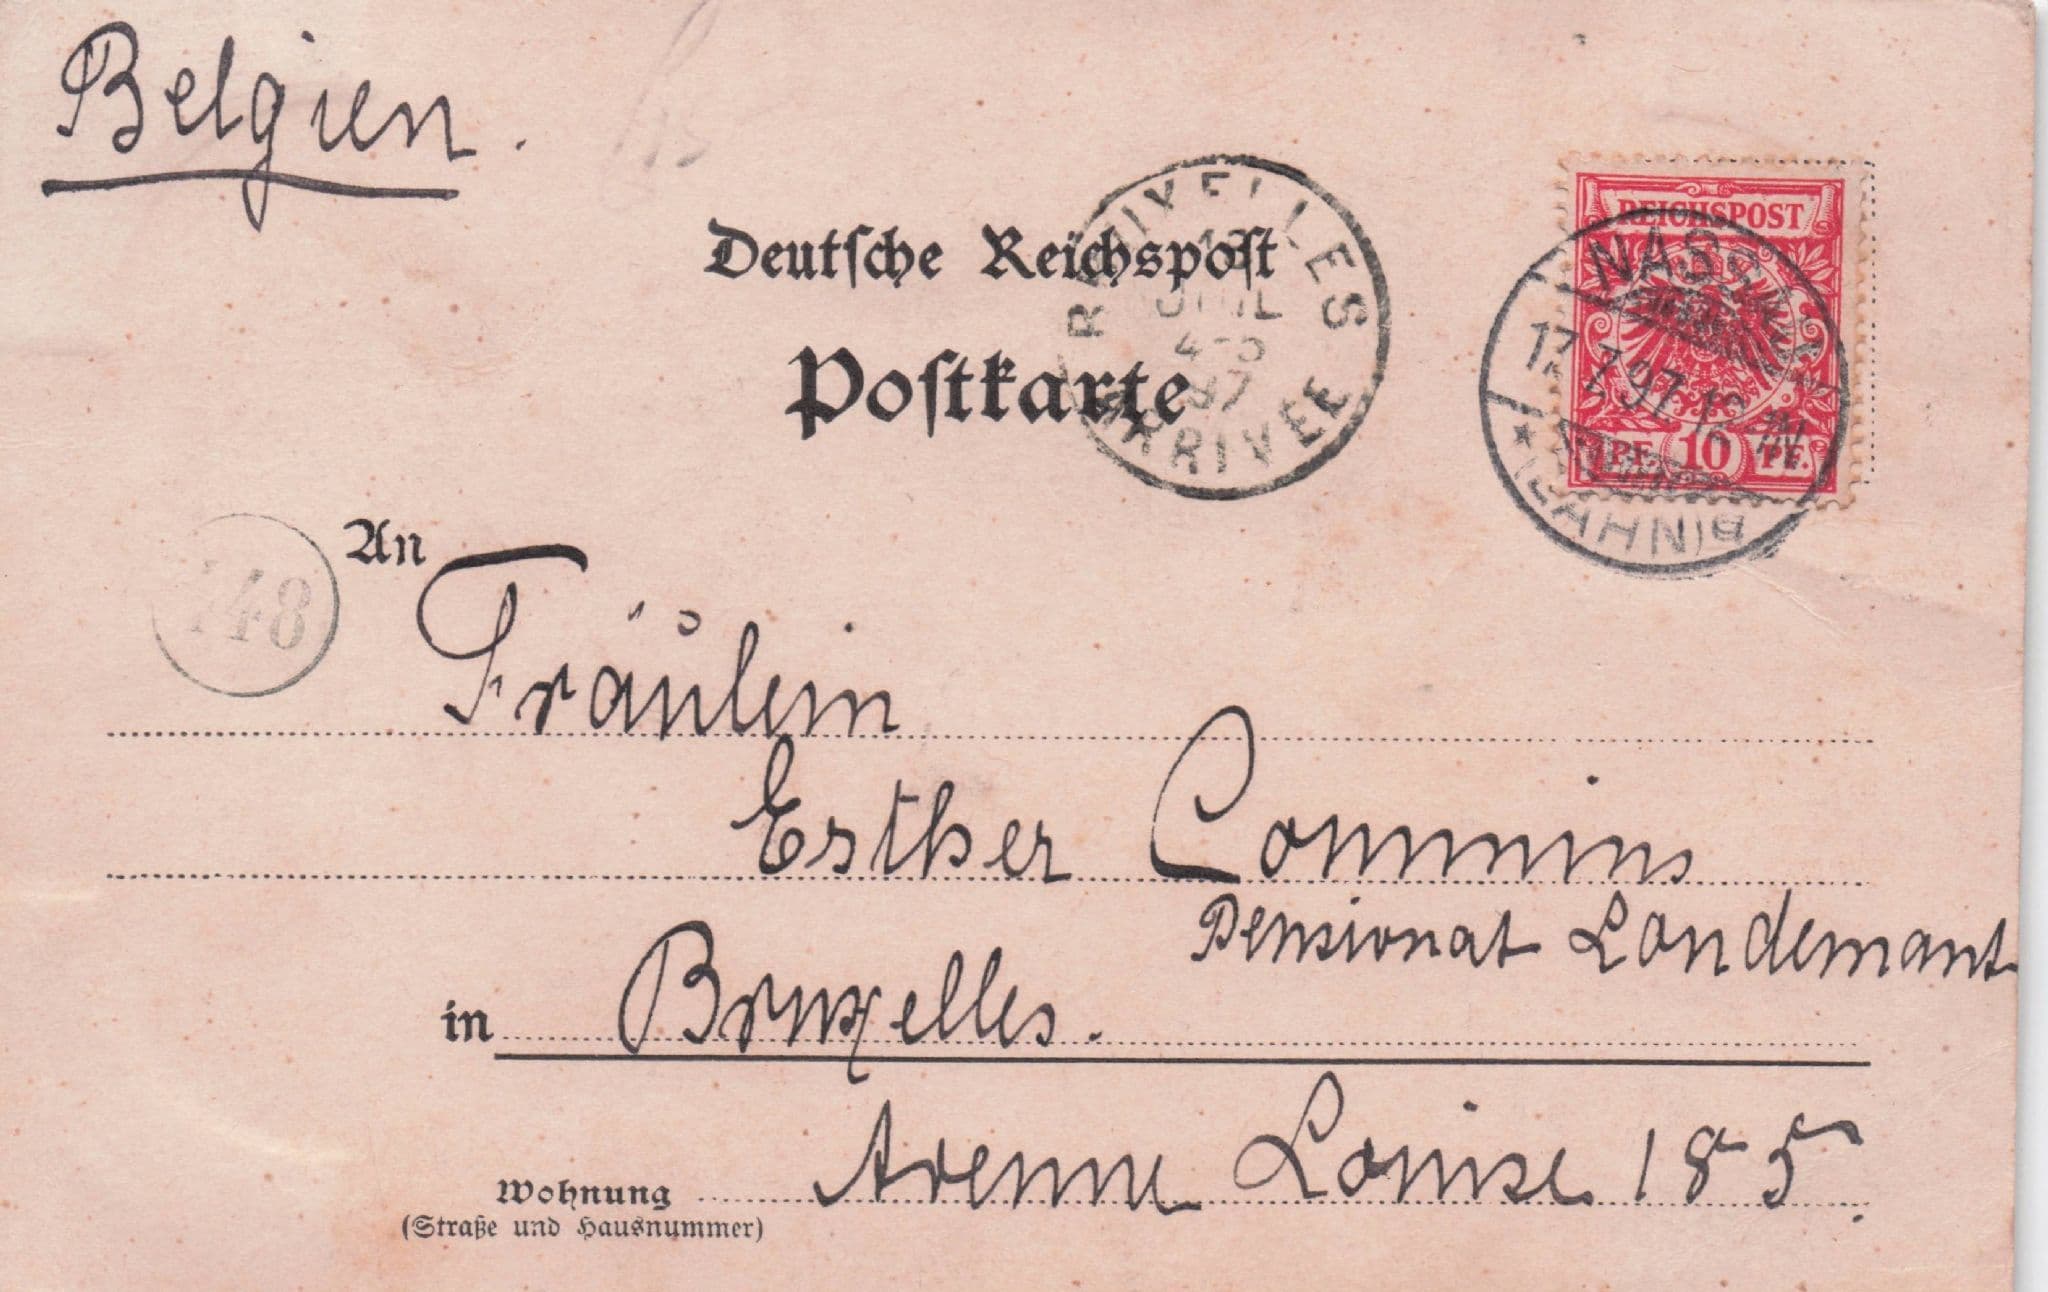 Belgien.
Deutsche Reichspost
Postkarte
BRUXELLES
JUIL
97
ARRIVEE
REICHSPOST
PF. 10 PF.
NASSAU
17.7.97.12-1N.
(LAHN)B
148
An
Fräulein
Esther Commins
Pensionat Landemant
in Bruxelles.
Avenue Louise 185.
Wohnung
(Straße und Hausnummer)